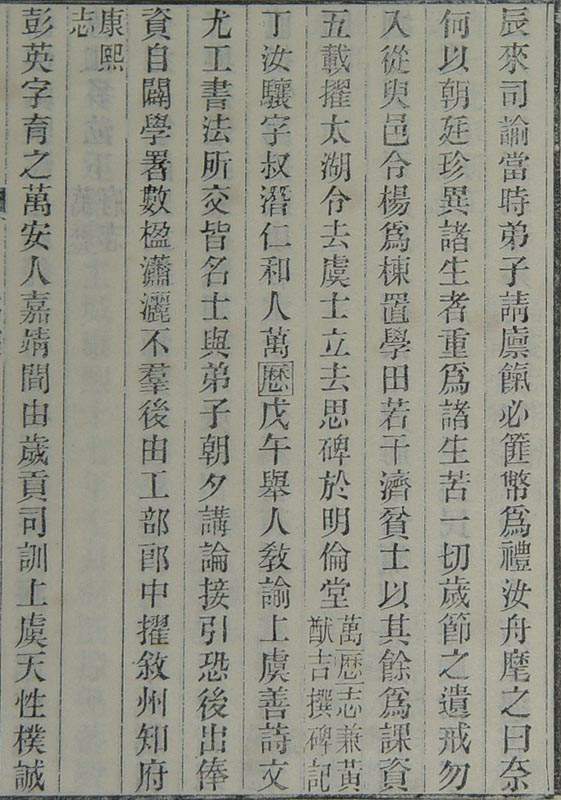 辰來司諭當時弟子請廩餼必篚幣爲禮汝舟麾之曰奈
何以朝廷珍異諸生者重爲諸生苦一切歲節之遺戒勿
入從臾邑令楊爲棟置學田若干濟貧士以其餘爲課資
五載擢太湖令去虞士立去思碑於明倫堂萬歷志兼黃猷吉撰碑記
丁汝驤字叔潛仁和人萬歷戊午舉人敎諭上虞善詩文
尤工書法所交皆名士與弟子朝夕講論接引恐後出俸
資自闢學署數楹瀟灑不羣後由工部郎中擢敘州知府
康熙志
彭英字育之萬安人嘉靖間由歲貢司訓上虞天性樸誠